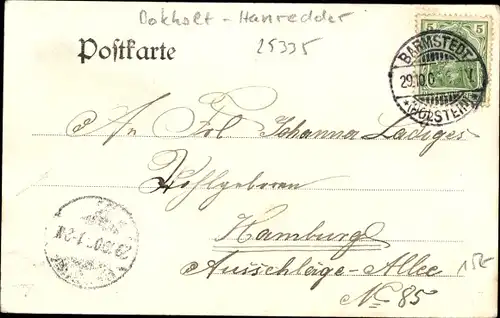 Bokholt - Hanredder
25335
Postkarte
5 5
BARMSTEDT
29.10.0
* (HOLSTEIN) *
An Frl Johanna Ladiges
Wohlgeboren
Hamburg
Ausschläge-Allee
No 85